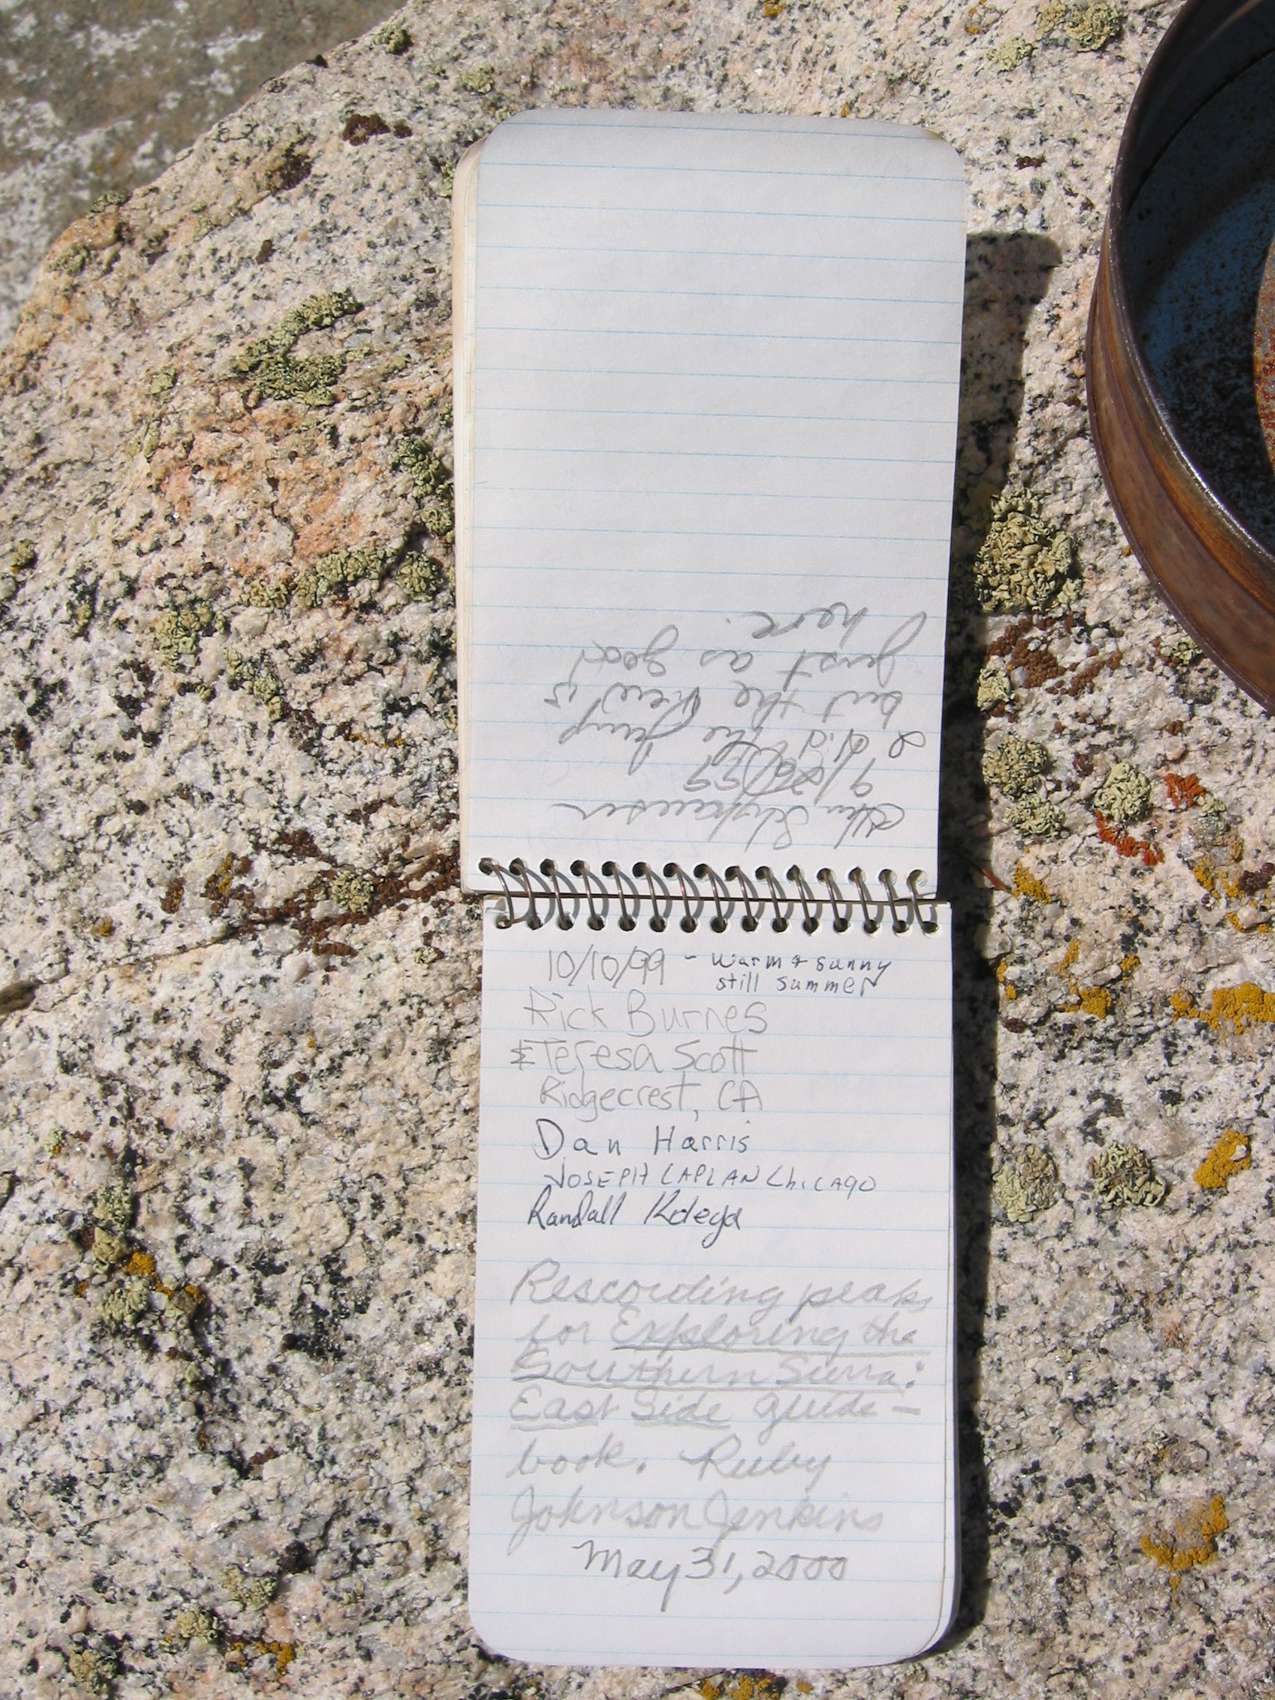 I did the
but the view is
just as good
here.
10/10/99 - warm & sunny
still summer
Rick Burnes
& Teresa Scott
Ridgecrest, CA
Dan Harris
JOSEPH CAPLAN ChiCAgO
Randall
Rescouting peaks
for Exploring the
Southern Sierra:
East Side guide-
book. Ruby
Johnson Jenkins
May 31, 2000